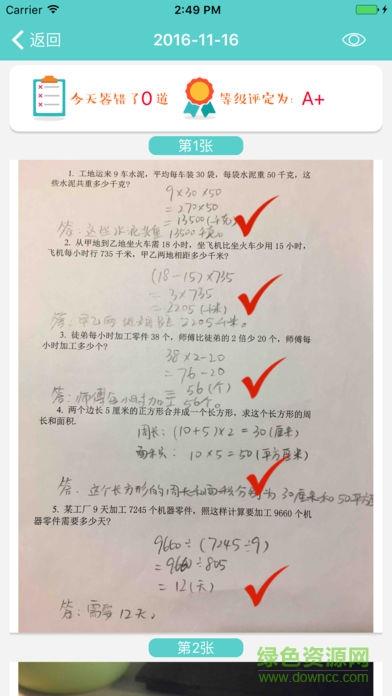 Carrier 2:49 PM
返回 2016-11-16
今天答错了0道 等级评定为: A+
第1张
1. 工地运来 9 车水泥，平均每车装 30 袋，每袋水泥重 50 千克，这
些水泥共重多少千克?
9×30×50
=270×50
=13500(千克)
答:这些水泥共重13500千克。
2. 从甲地到乙地坐火车需 18 小时，坐飞机比坐火车少用 15 小时，
飞机每小时行 735 千米，甲乙两地相距多少千米?
(18-15)×735
=3×735
=2205(千米)
答:甲乙两地相距2205千米。
3. 徒弟每小时加工零件 38 个，师傅比徒弟的 2 倍少 20 个，师傅每
小时加工多少个?
38×2-20
=76-20
=56(个)
答:师傅每小时加工56个。
4. 两个边长 5 厘米的正方形合并成一个长方形，求这个长方形的周
长和面积.
周长:(10+5)×2=30(厘米)
面积: 10×5=50(平方厘米)
答。这个长方形的周长和面积分别为30厘米和50平方
5. 某工厂 9 天加工 7245 个机器零件，照这样计算要加工 9660 个机
器零件需要多少天?
9660÷(7245÷9)
=9660÷805
=12(天)
答:需要12天。
第2张
绿色资源网
www.downcc.com